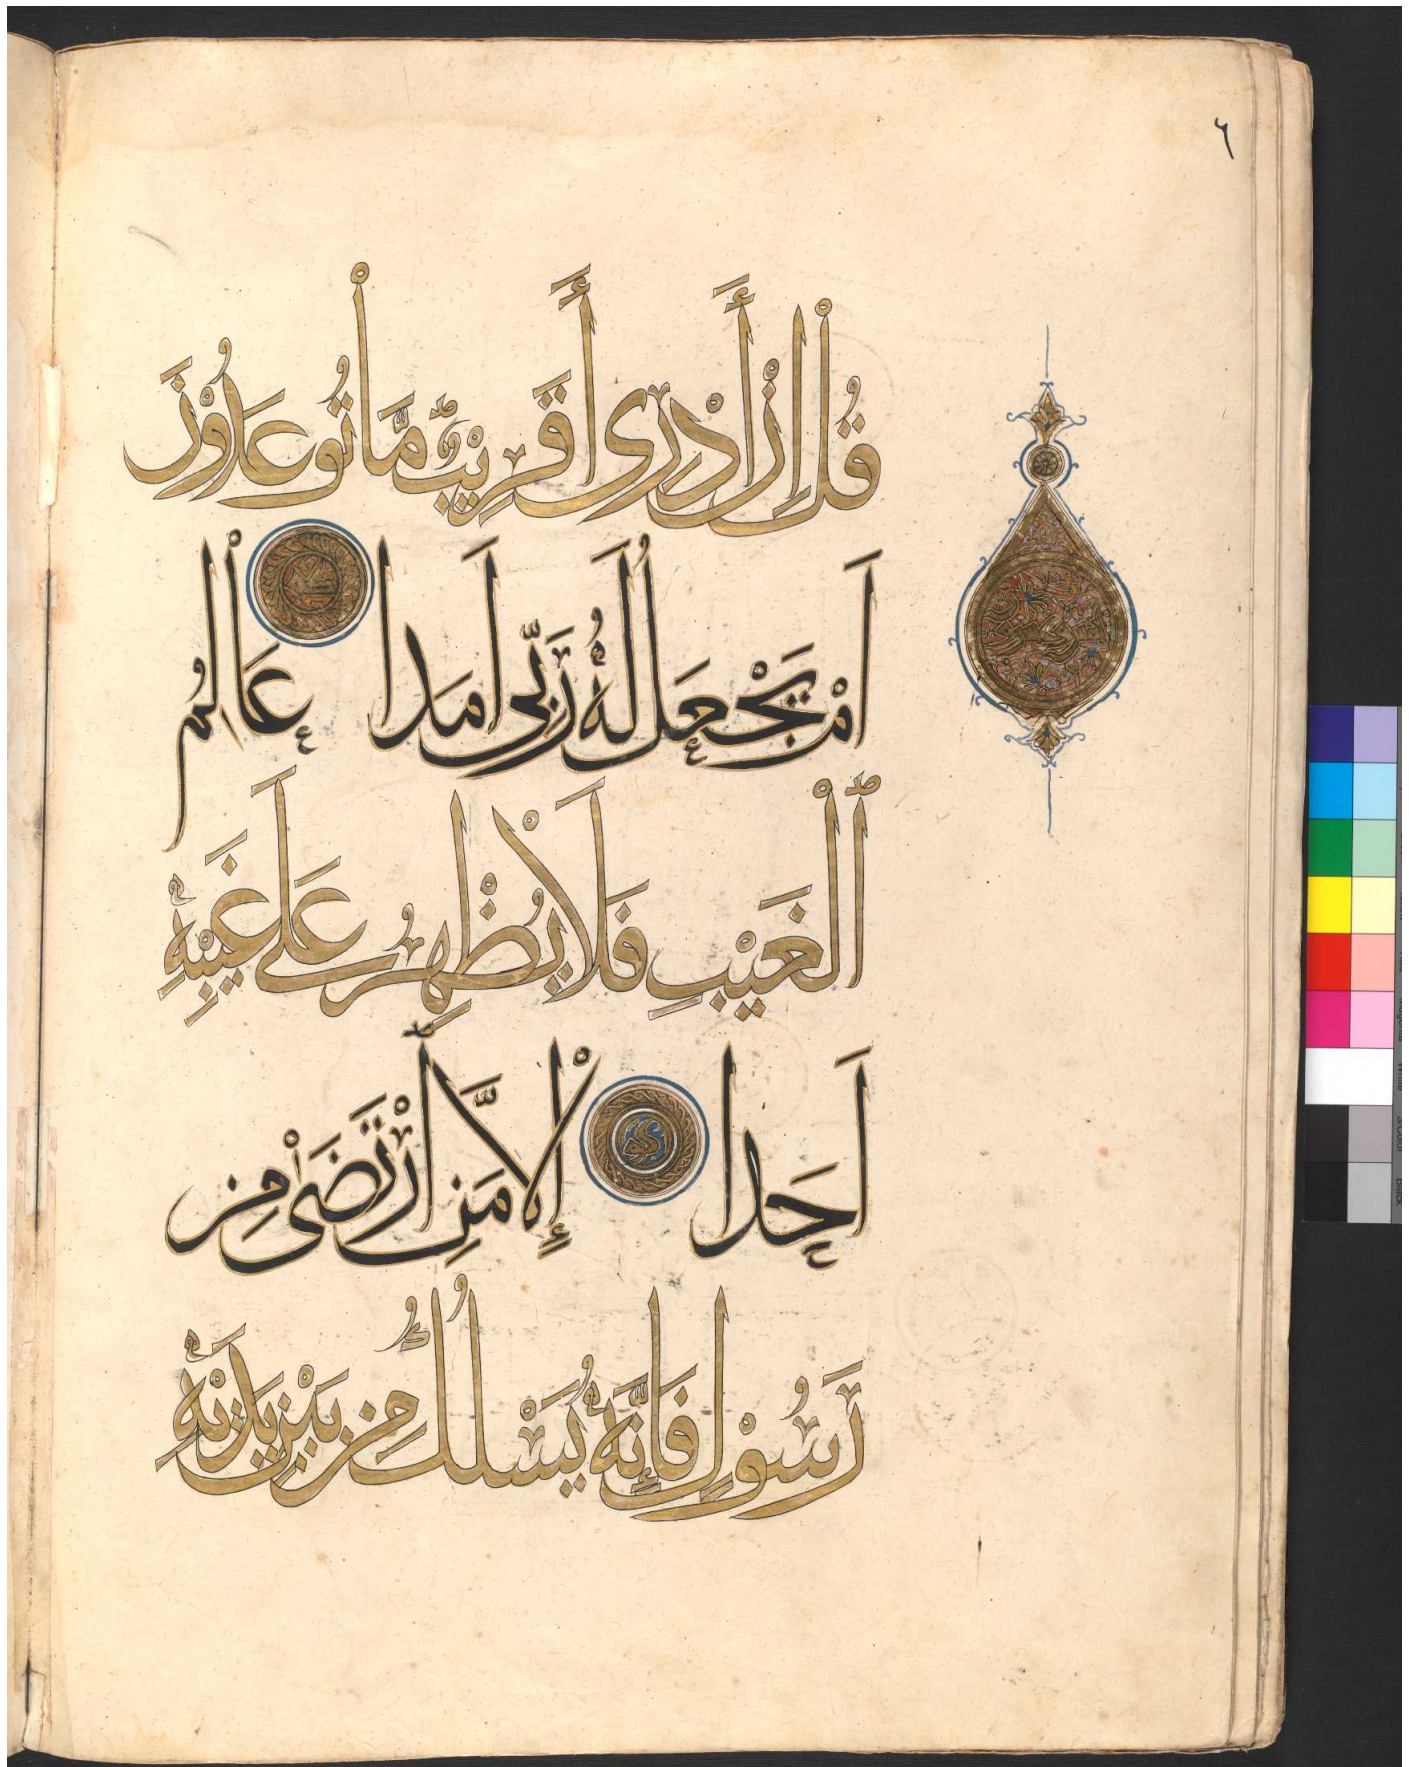 ٦
قُلْ إِنْ أَدْرِى أَقَرِيبٌ مَّا تُوعَدُونَ
أَمْ يَجْعَلُ لَهُ رَبِّى أَمَدا عَالِمُ
ٱلْغَيْبِ فَلَا يُظْهِرُ عَلَى غَيْبِهِ
أَحَدا إِلَّا مَنِ ٱرْتَضَى مِن
رَسُولٍ فَإِنَّهُ يَسْلُكُ مِن بَيْنِ يَدَيْهِ